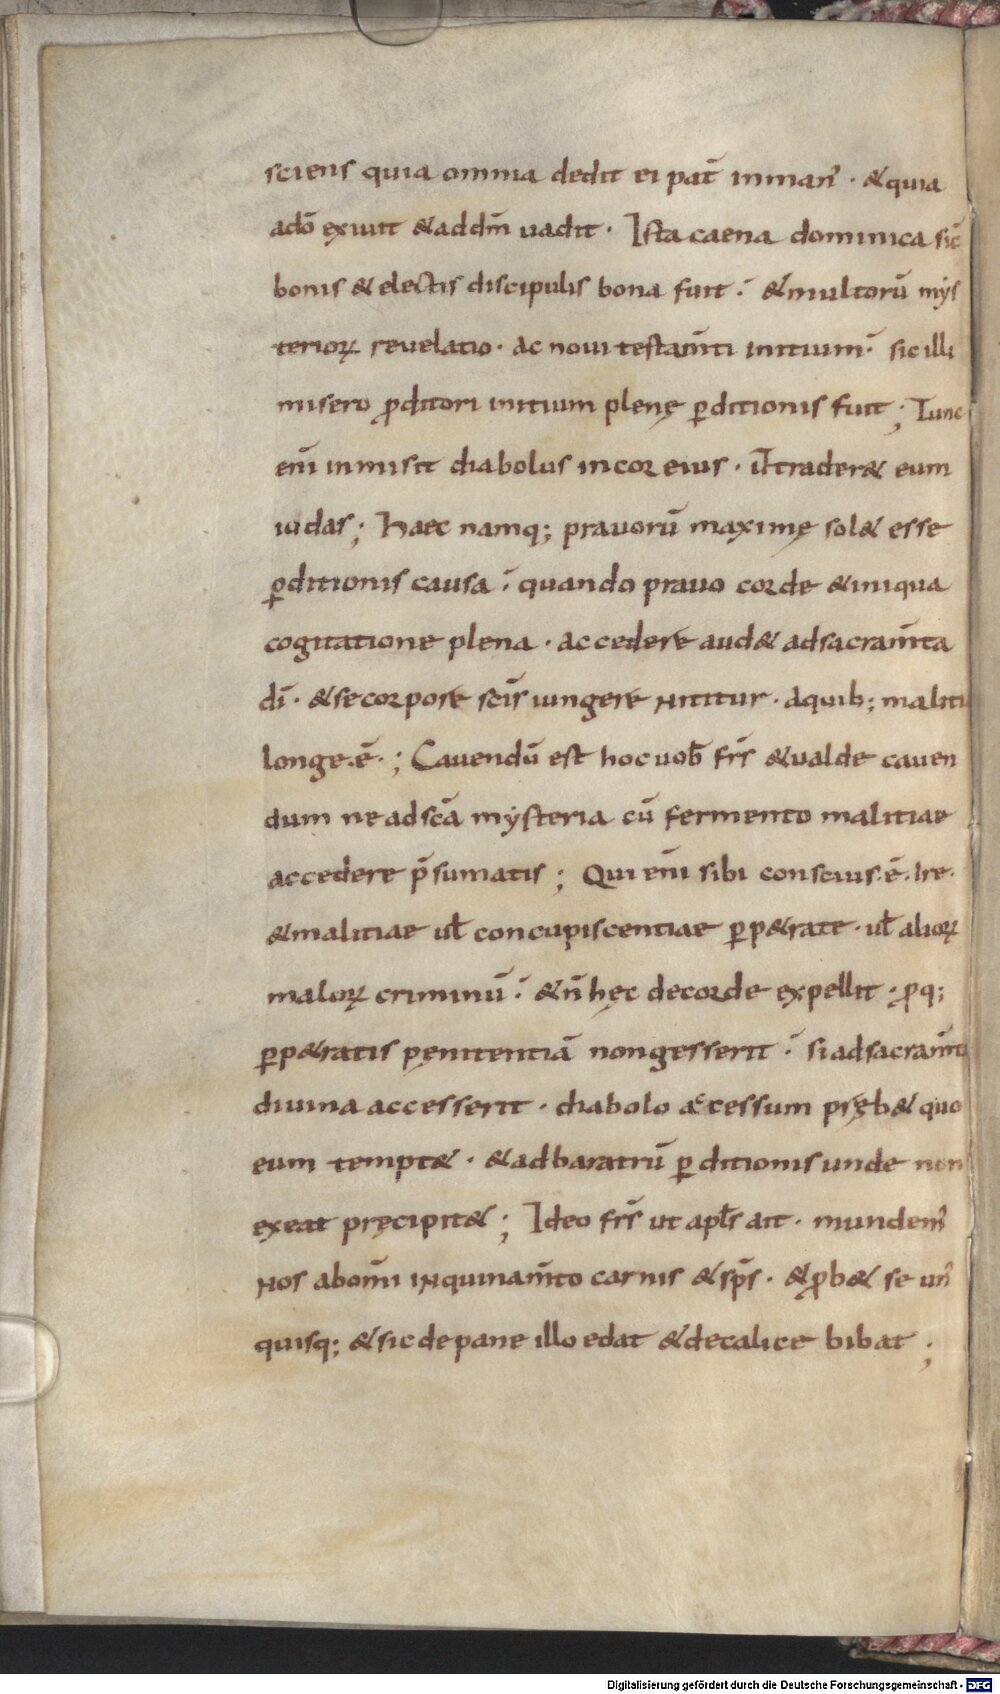 sciens quia omnia dedit ei pat̄ inman᾽ · &quia
adō exiuit &addm̄ uadit · Ista caena dominica sic̄
bonis & electis discipulis bona fuit :̄ &multorū mẏs
terioꝝ reuelatio · ac noui testam̄ti initium :̄ sic illi
misero ꝓditori initium plenę ꝑditionis fuit ; Tunc
enī inmisit diabolus incor eius · ut̄ trader& eum
iudas ; Haec namq; prauorū maximę sol& esse
ꝑditionis causa :̄ quando prauo corde &iniqua
cogitatione plena · accedere aud& adsacram̄ta
dī · &secorpore scīs iungere nititur · aquib; maliti
longe·ē· ; Cauendū est hoc uob̄ fr̄s &ualde cauen
dum ne adscā mẏsteria cū fermento malitiae
accedere p̄sumatis ; Qui enī sibi conscius·ē·Ire·
&malitiae uł concupiscentiae ꝑp&rate · uł alioꝝ
maloꝝ criminū :̄ &n̄ hęc decorde expellit · ꝓq;
ꝑp&ratis pęnitentiā nongesserit :̄ si adsacram̄ta
diuina accesserit · diabolo accessum pręb& quo
eum tempt& · &adbaratrū ꝑditionis unde non
exeat pręcipit& ; Ideo fr̄s ut apłs ait · mundem᾽
nos abom̄i inquinam̄to carnis &sp̄s · &ꝓb& se un᾽
quisq; &sic depane illo edat &decalice bibat ;
Digitalisierung gefördert durch die Deutsche Forschungsgemeinschaft - DFG